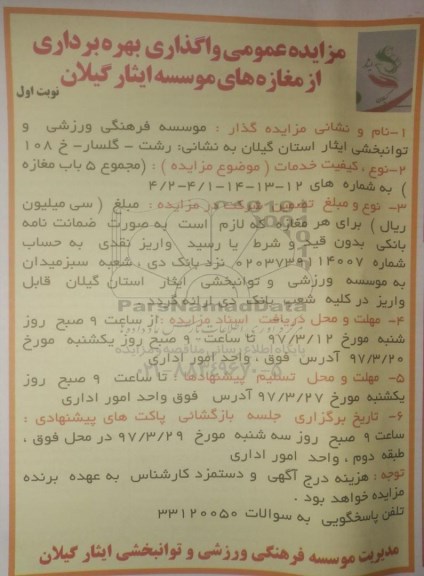 مزایده عمومی واگذاری بهره برداری
از مغازه های موسسه ایثار گیلان
نوبت اول
۱- نام و نشانی مزایده گذار : موسسه فرهنگی ورزشی و
توانبخشی ایثار استان گیلان به نشانی: رشت - گلسار- خ ۱۰۸
۲- نوع ، کیفیت خدمات ( موضوع مزایده ) : (مجموع ۵ باب مغازه
) به شماره های ۱۲-۱۳-۱۴-۴/۱-۴/۲
۳- نوع و مبلغ تضمین شرکت در مزایده : مبلغ ( سی میلیون
ریال ) برای هر مغازه که لازم است به صورت ضمانت نامه
بانکی بدون قید و شرط یا رسید واریز نقدی به حساب
شماره نزد بانک دی ، شعبه سبزمیدان
به موسسه ورزشی و توانبخشی ایثار استان گیلان قابل
واریز در کلیه شعب بانک دی ارائه گردد.
۴- مهلت و محل دریافت اسناد مزایده : از ساعت ۹ صبح روز
شنبه مورخ ۹۷/۳/۱۲ تا ساعت ۹ صبح روز یکشنبه مورخ
۹۷/۳/۲۰ آدرس فوق ، واحد امور اداری
۵- مهلت و محل تسلیم پیشنهادها : تا ساعت ۹ صبح روز
یکشنبه مورخ ۹۷/۳/۲۷ آدرس فوق واحد امور اداری
۶- تاریخ برگزاری جلسه بازگشائی پاکت های پیشنهادی :
ساعت ۹ صبح روز سه شنبه مورخ ۹۷/۳/۲۹ در محل فوق ،
طبقه دوم ، واحد امور اداری
توجه : هزینه درج آگهی و دستمزد کارشناس به عهده برنده
مزایده خواهد بود .
تلفن پاسخگویی به سوالات ۳۳۱۲۰۰۵۰
مدیریت موسسه فرهنگی ورزشی و توانبخشی ایثار گیلان
ParsNamadData
پایگاه اطلاع رسانی مناقصه و مزایده
۰۲۱-۸۸۳۴۹۶۷۰-۵